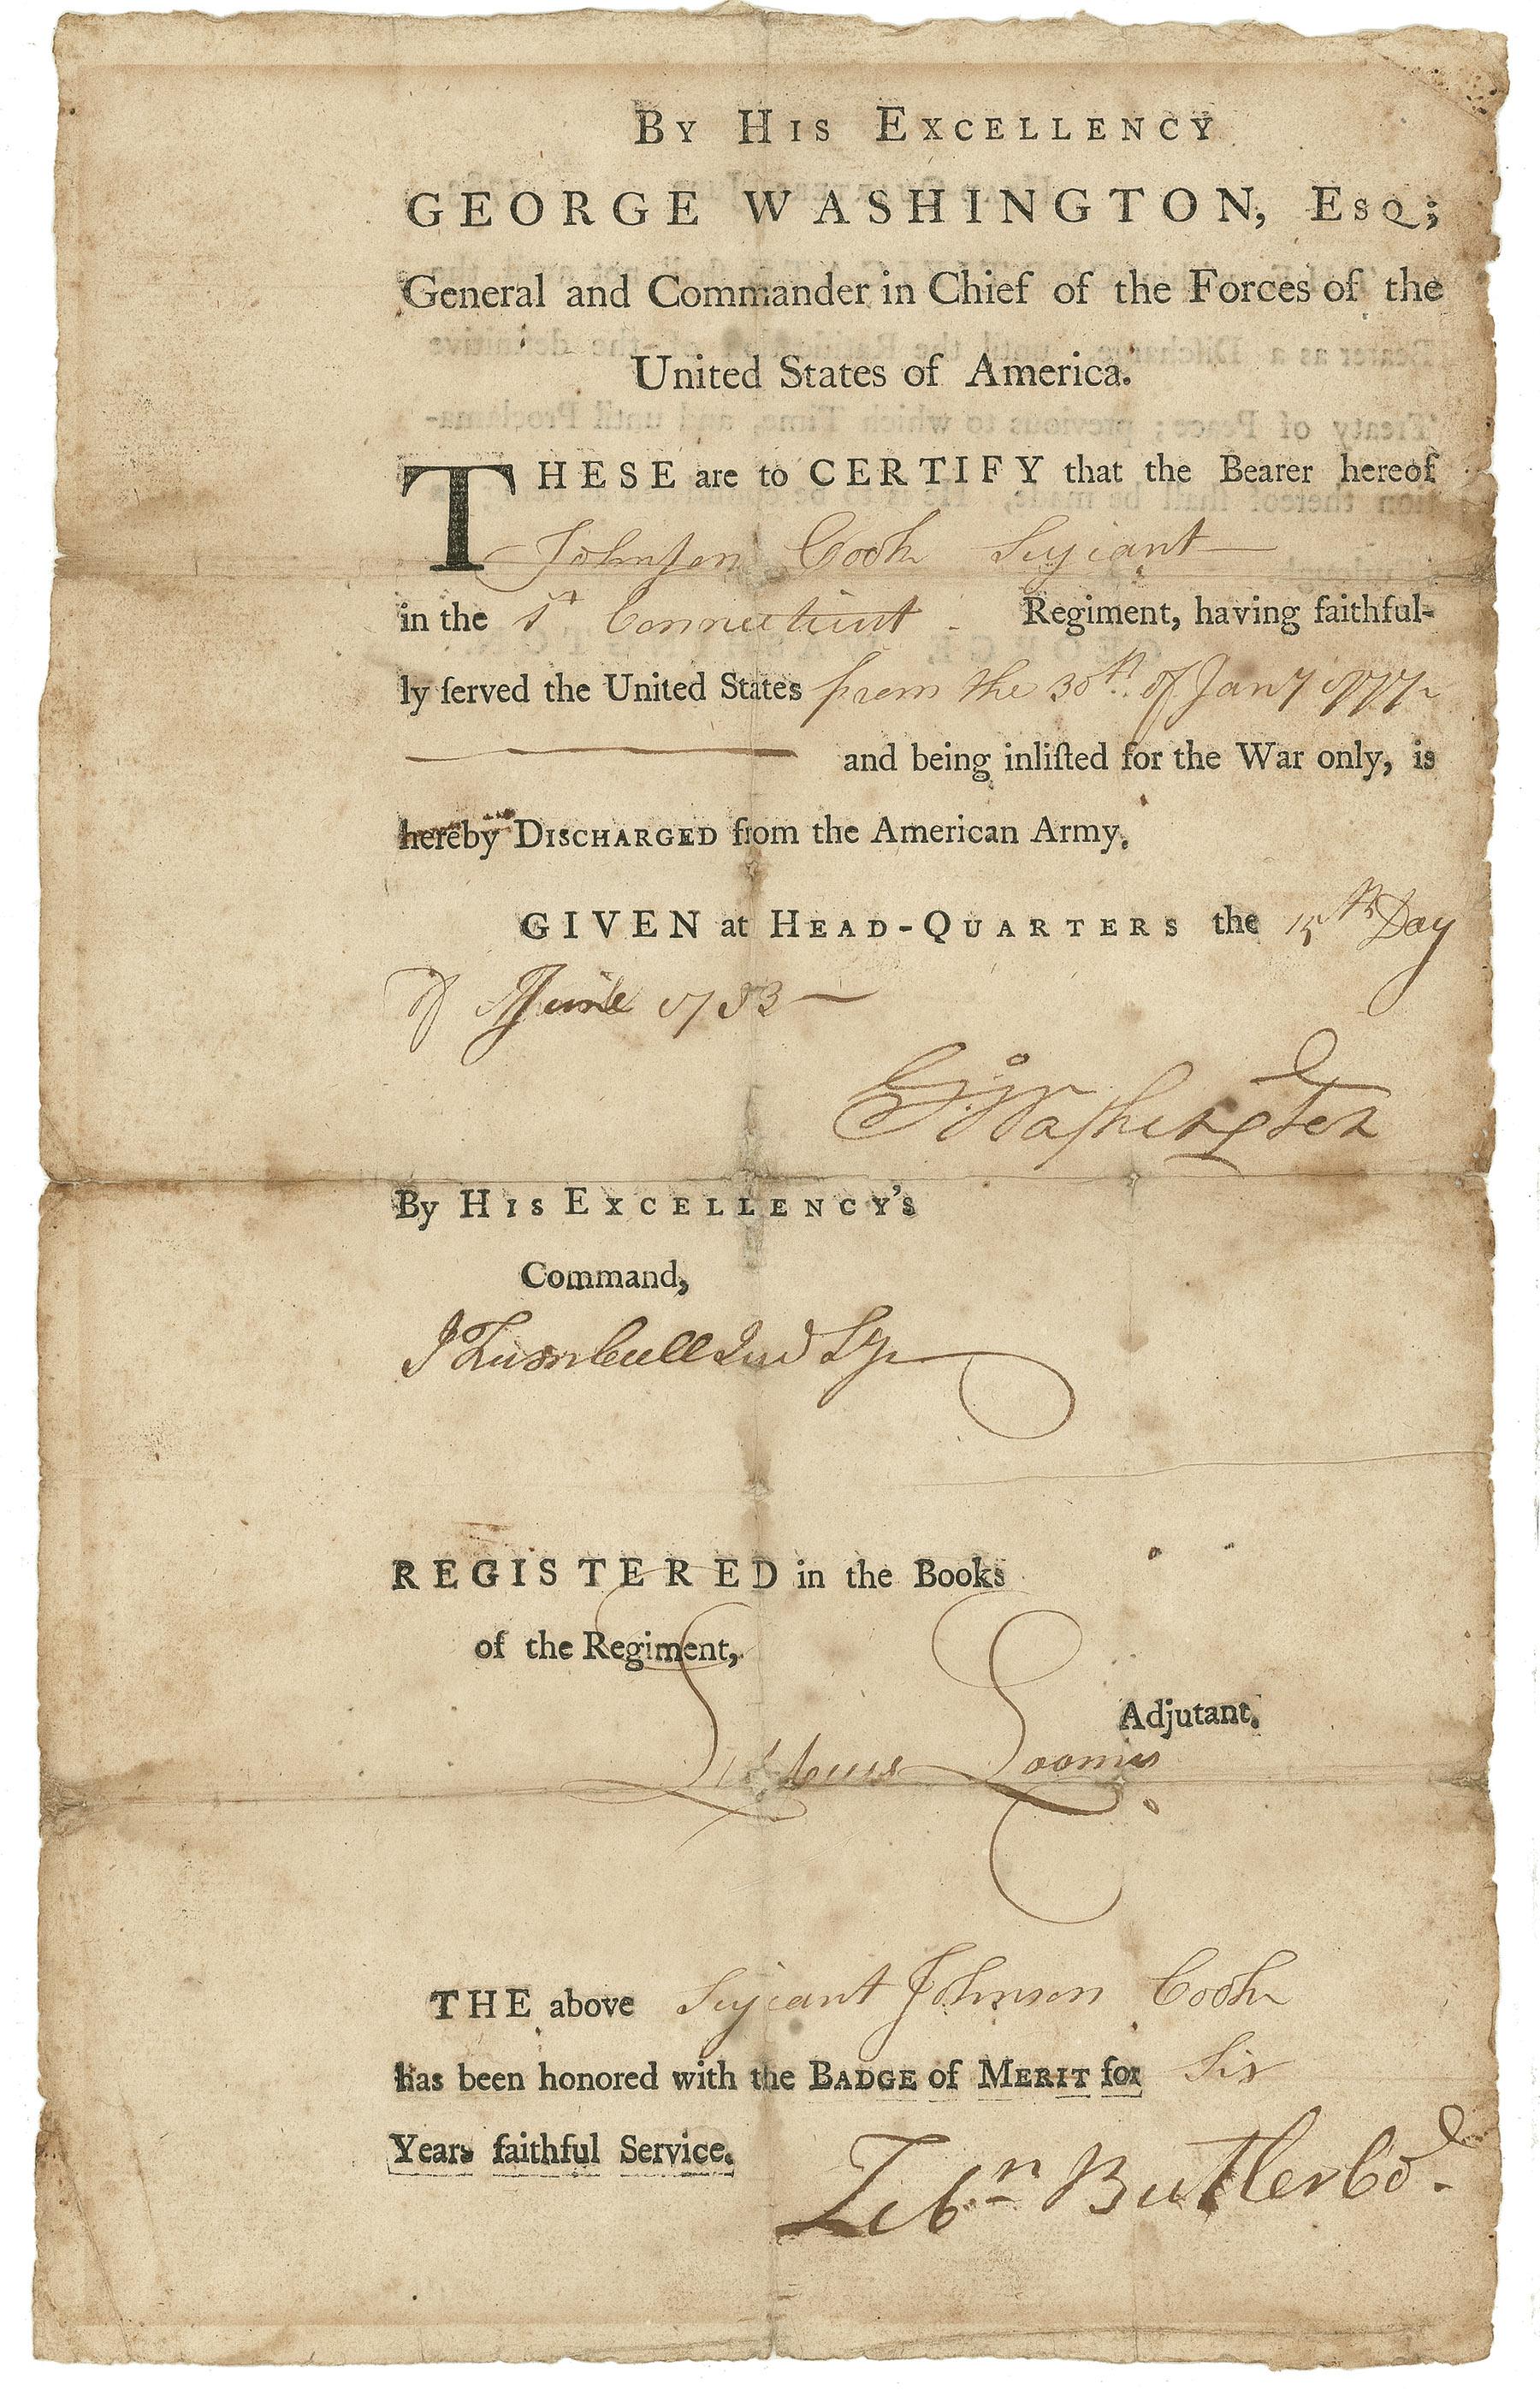 By His Excellency
GEORGE WASHINGTON, Esq;
General and Commander in Chief of the Forces of the
United States of America.
THESE are to CERTIFY that the Bearer hereof
Johnson Cook Serjeant
in the 1st Connecticut Regiment, having faithful-
ly ſerved the United States from the 30th of Jany 1777
and being inliſted for the War only, is
hereby Discharged from the American Army.
GIVEN at Head-Quarters the 15th Day
of June 1783
Go: Washington
By His Excellency's
Command,
J Trumbull Jun Sy
REGISTERED in the Books
of the Regiment,
Adjutant.
Loomis
THE above Serjeant Johnson Cook
has been honored with the Badge of Merit for Six
Years faithful Service.
Zebn Butler Col.